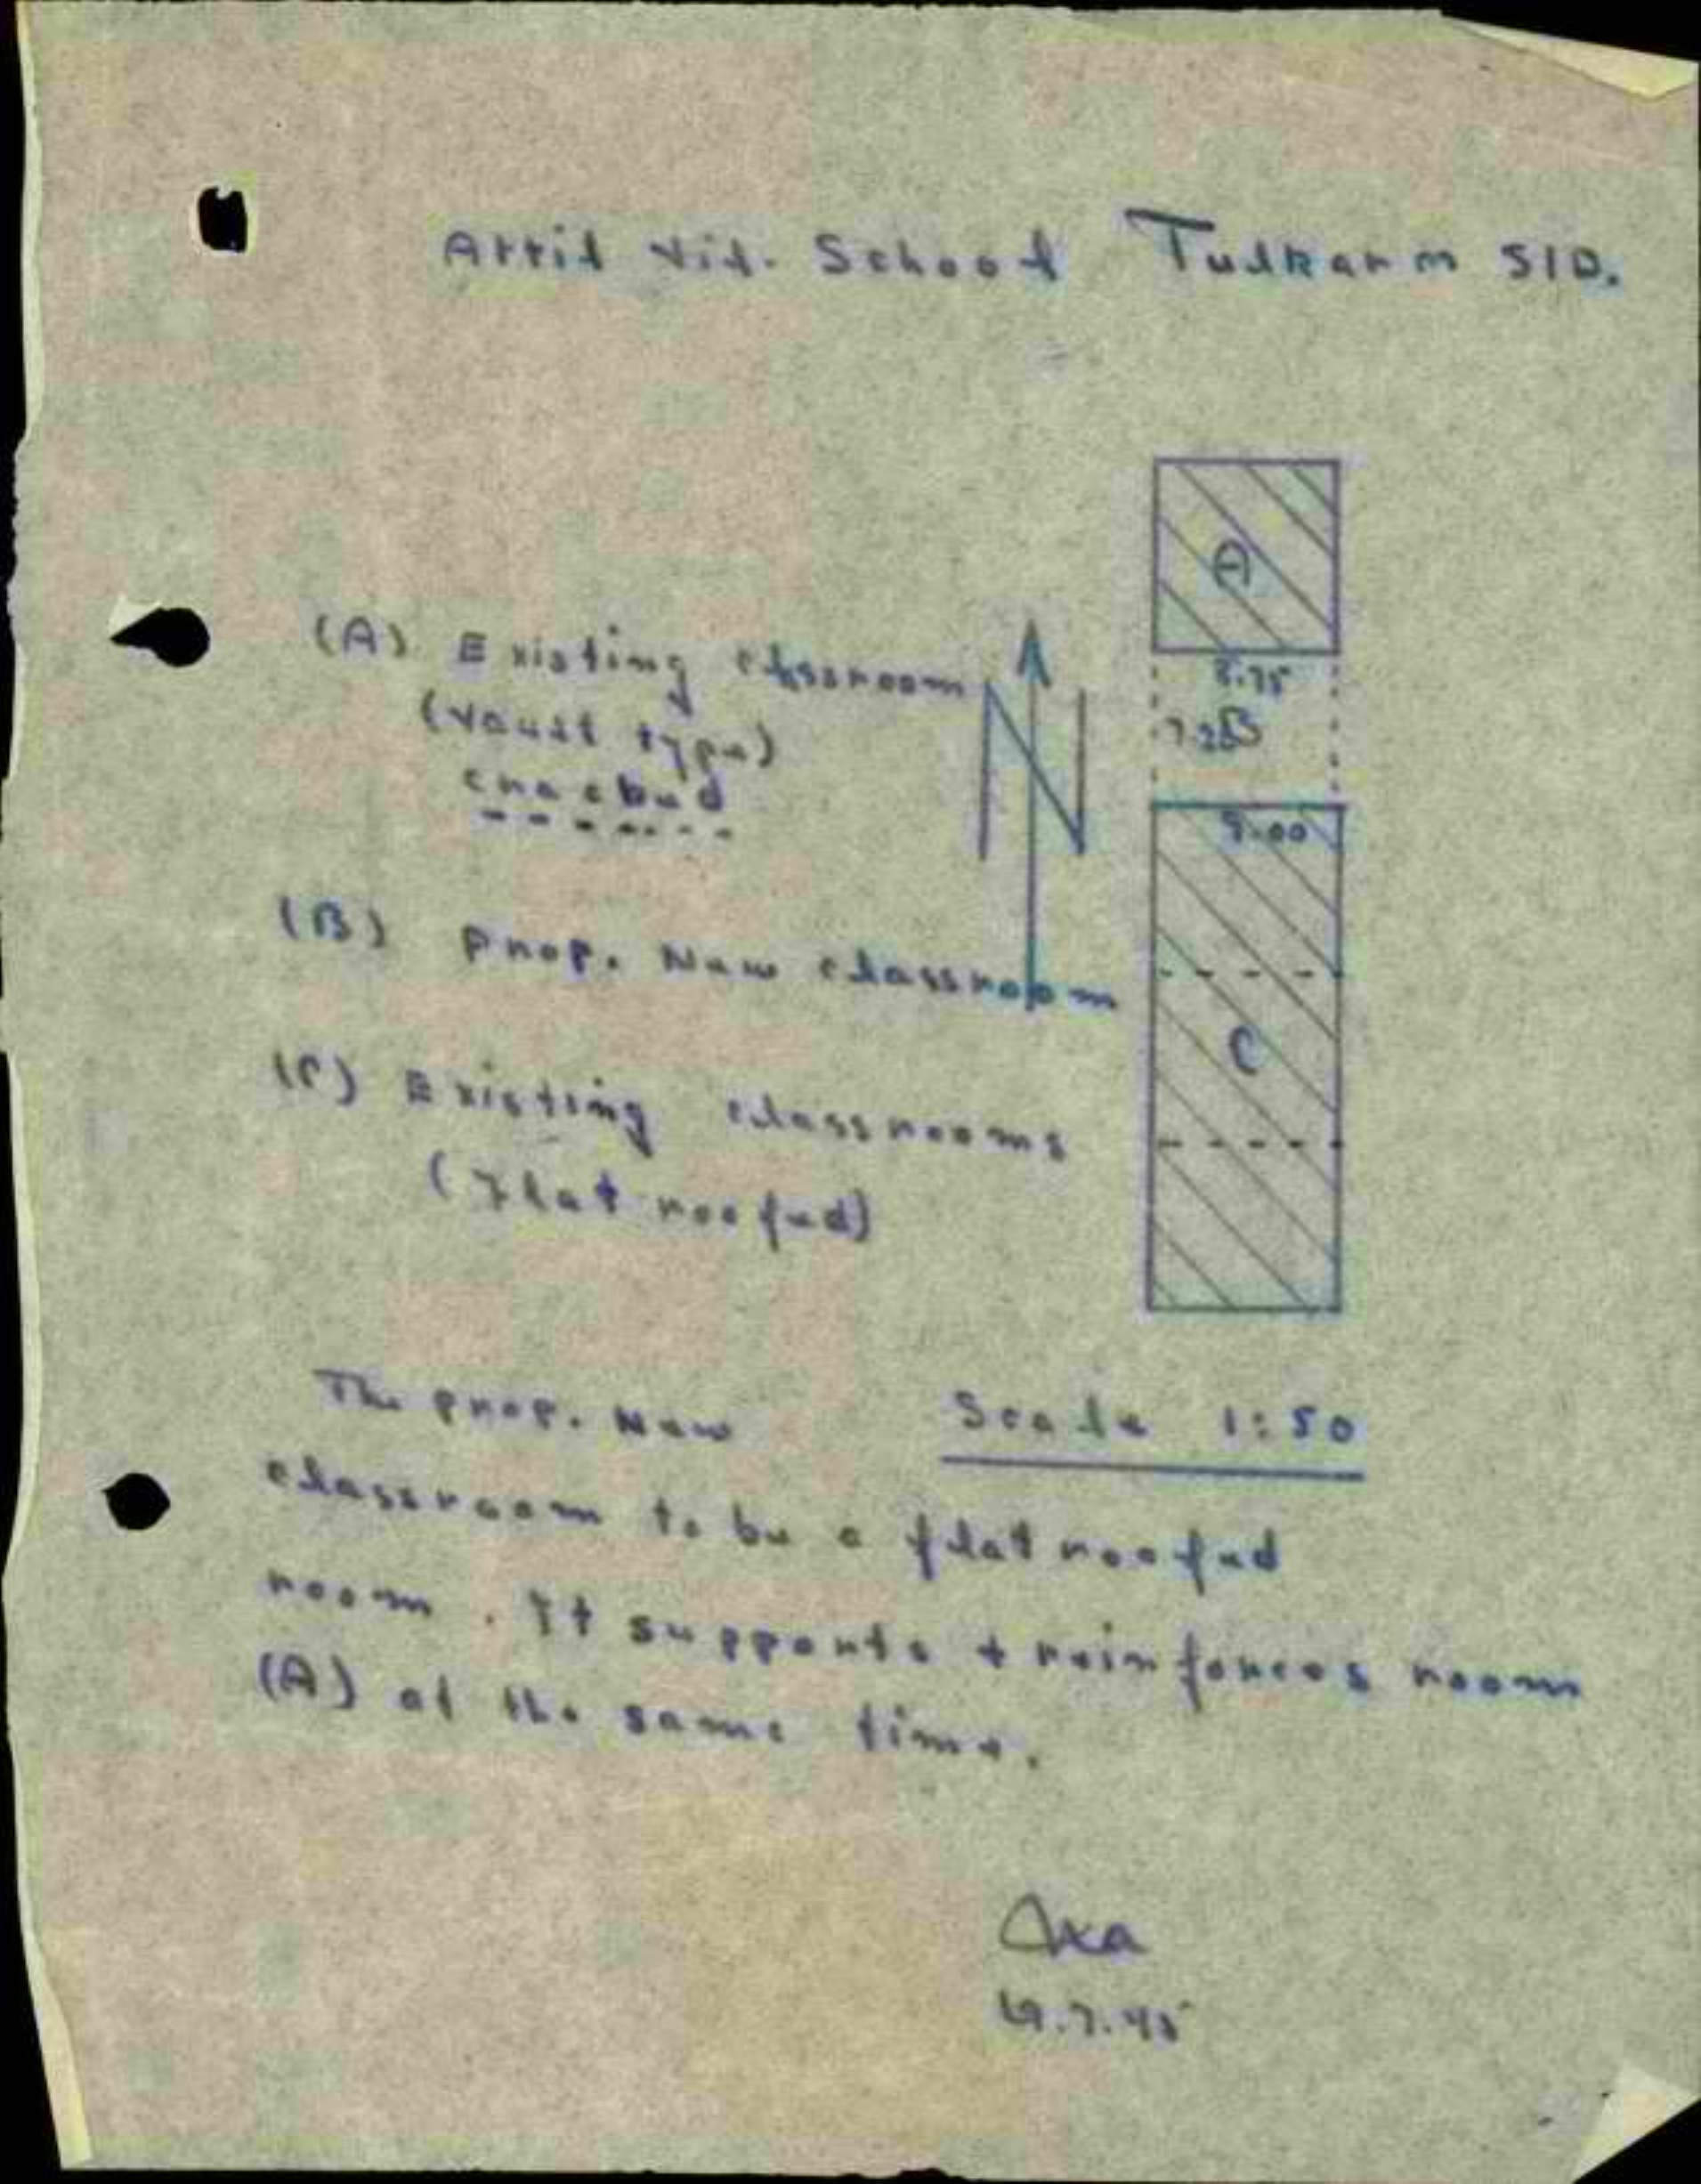 Attil Vil. School Tulkarm S/D.
A
(A) Existing classroom
(Vault type)
cracked
8.75
B
N
9.00
(B) Prop. New classroom
C
(C) Existing classrooms
(Flat roofed)
The prop. New
Scale 1:50
classroom to be a flat roofed
room. It supports + reinforces room
(A) at the same time.
.7.45